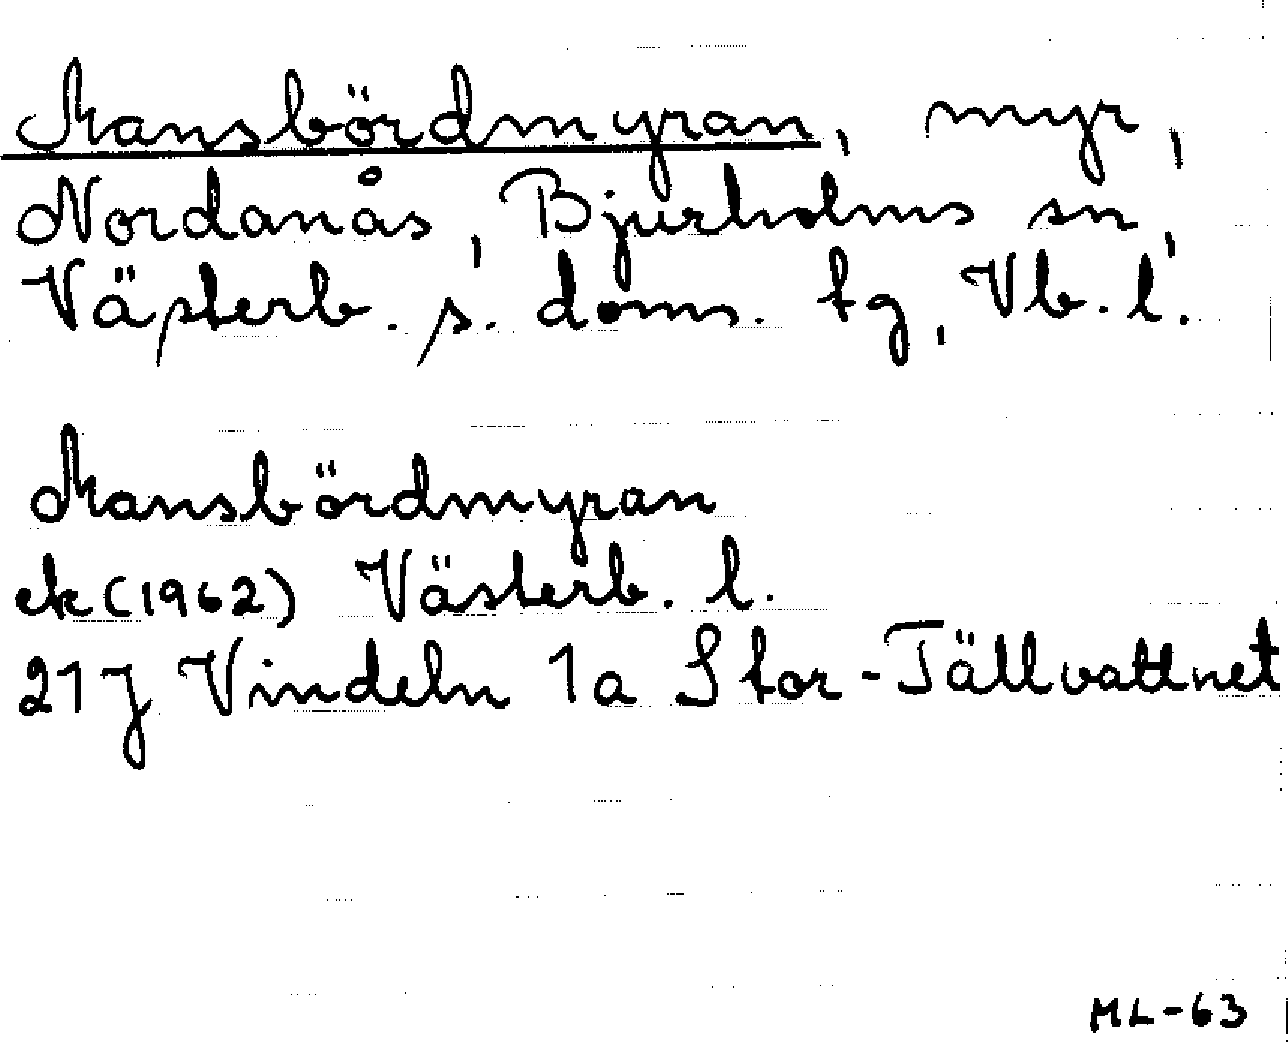 Mansbördmyran, myr,
Nordanås, Bjurholms sn,
Västerb. s. doms. tg, Vb. l.
Mansbördmyran
ek (1962) Västerb. l.
21 J Vindeln 1a Stor-Tällvattnet
ML-63